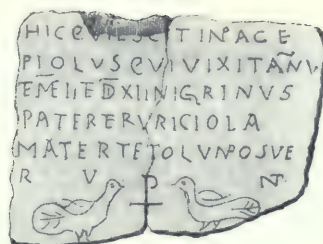 HICQVIESC TINPACE
PIOLUSQVIVIXITAN̄V
EM̄EIIED̄XIINIGRINVS
PATERERVRICIOLA
MATERTETOLVNPOSVE
R V ⳨ NT